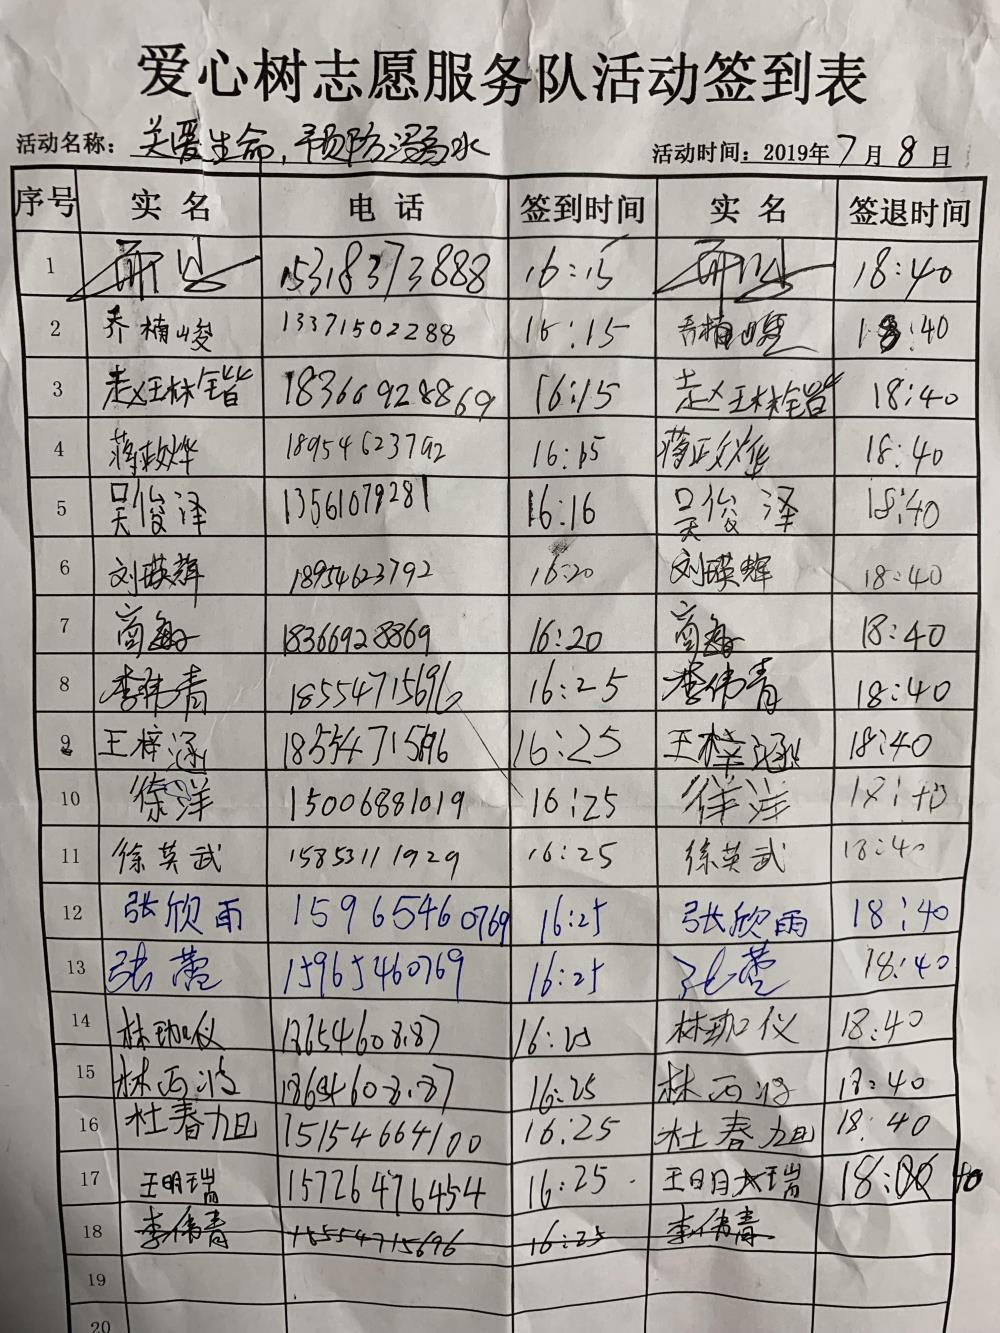 爱心树志愿服务队活动签到表
活动名称: 关爱生命,预防溺水 活动时间: 2019年7月8日
序号 实名 电话 签到时间 实名 签退时间
1 15318373888 16:15 18:40
2 乔楠峻 13371502288 16:15 乔楠峻 18:40
3 赵王林锴 18366928869 16:15 赵王林锴 18:40
4 蒋政烨 18954623792 16:15 蒋政烨 18:40
5 吴俊泽 13561079281 16:16 吴俊泽 18:40
6 刘瑛辉 18954623792 16:20 刘瑛辉 18:40
7 商 18366928869 16:20 商 18:40
8 李伟青 18554715696 16:25 李伟青 18:40
9 王梓涵 18554715696 16:25 王梓涵 18:40
10 徐洋 15006881019 16:25 徐洋 18:40
11 徐英武 15853111929 16:25 徐英武 18:40
12 张欣雨 15965460769 16:25 张欣雨 18:40
13 张蕾 15965460769 16:25 张蕾 18:40
14 林珈仪 16:25 林珈仪 18:40
15 林 16:25 林 18:40
16 杜春旭 15154664100 16:25 杜春旭 18:40
17 王明瑞 15726476454 16:25 王明瑞 18:40
18 李伟青 18554715696 16:25 李伟青
19
20